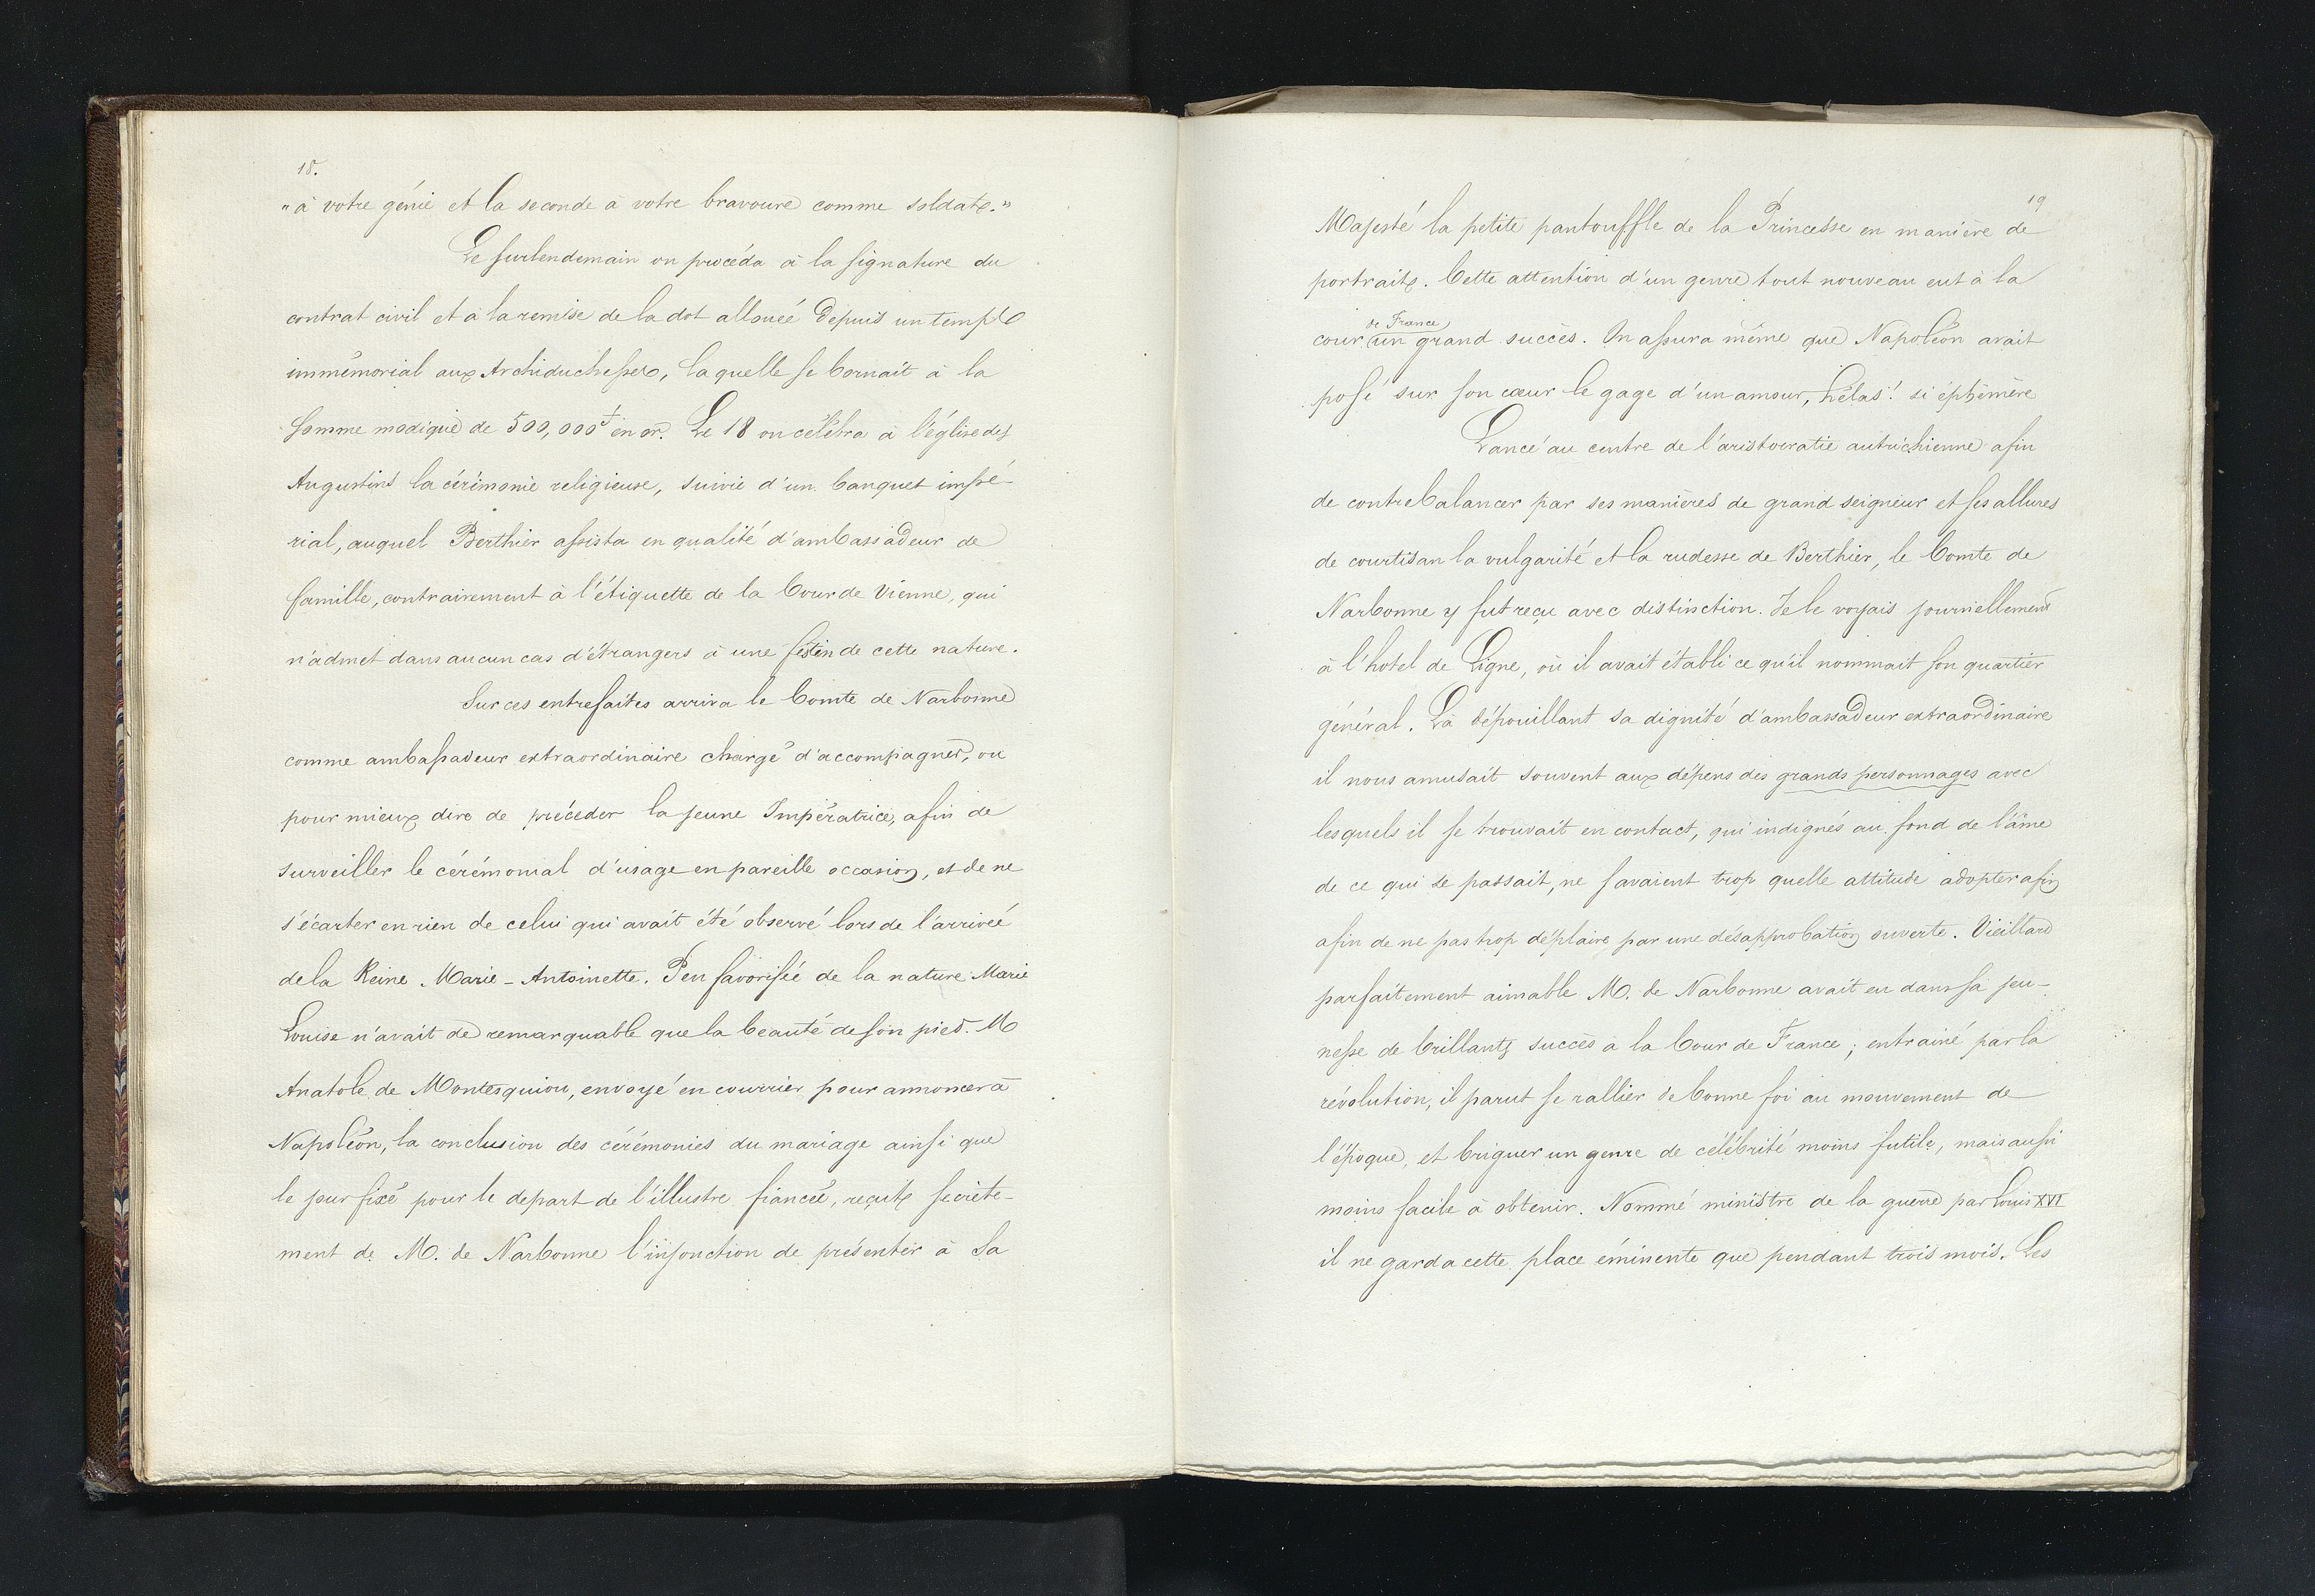 18.
"à votre génie et la seconde à votre bravoure comme soldat."
Le surlendemain on procéda à la signature du
contrat civil et à la remise de la dot allouée depuis un temps
immémorial aux Archiduchesses, laquelle se bornait à la
somme modique de 500,000 en or. Le 18 on célébra à l'église des
Augustins la cérémonie religieuse, suivie d'un banquet impé-
rial, auquel Berthier assista en qualité d'ambassadeur de
famille, contrairement à l'étiquette de la Cour de Vienne, qui
n'admet dans aucun cas d'étrangers à une festin de cette nature.
Sur ces entrefaites arriva le Comte de Narbonne
comme ambassadeur extraordinaire chargé d'accompagner, ou
pour mieux dire de précéder la jeune Impératrice, afin de
surveiller le cérémonial d'usage en pareille occasion, et de ne
s'écarter en rien de celui qui avait été observé lors de l'arrivée
de la Reine Marie-Antoinette. Peu favorisée de la nature Marie
Louise n'avait de remarquable que la beauté de son pied. M
Anatole de Montesquiou, envoyé en courrier pour annoncer à
Napoléon, la conclusion des cérémonies du mariage ainsi que
le jour fixé pour le depart de l'illustre fiancée, reçut secrète-
ment de M. de Narbonne l'injonction de présenter à Sa
19
Majesté la petite pantouffle de la Princesse en manière de
portrait. Cette attention d'un genre tout nouveau eut à la
de France
cour un grand succès. On assura même que Napoléon avait
posé sur son cœur le gage d'un amour, hélas! si éphémère
Lancé au centre de l'aristocratie autrichienne afin
de contrebalancer par ses manières de grand seigneur et ses allures
de courtisan la vulgarité et la rudesse de Berthier, le Comte de
Narbonne y fut reçu avec distinction. Je le voyais journellement
à l'hotel de Ligne, où il avait établi ce qu'il nommait son quartier
général. Là dépouillant sa dignité d'ambassadeur extraordinaire
il nous amusait souvent aux dépens des grands personnages avec
lesquels il se trouvait en contact, qui indignés au fond de l'âme
de ce qui se passait, ne savaient trop quelle attitude adopter afin
afin de ne pas trop déplaire par une désapprobation ouverte. Vieillard
parfaitement aimable M. de Narbonne avait eu dans sa jeu-
nesse de brillants succès à la Cour de France; entrainé par la
révolution, il parut se rallier de bonne foi au mouvement de
l'époque, et briguer un genre de célébrité moins futile, mais aussi
moins facile à obtenir. Nommé ministre de la guerre par Louis XVI
il ne garda cette place éminente que pendant trois mois. Les